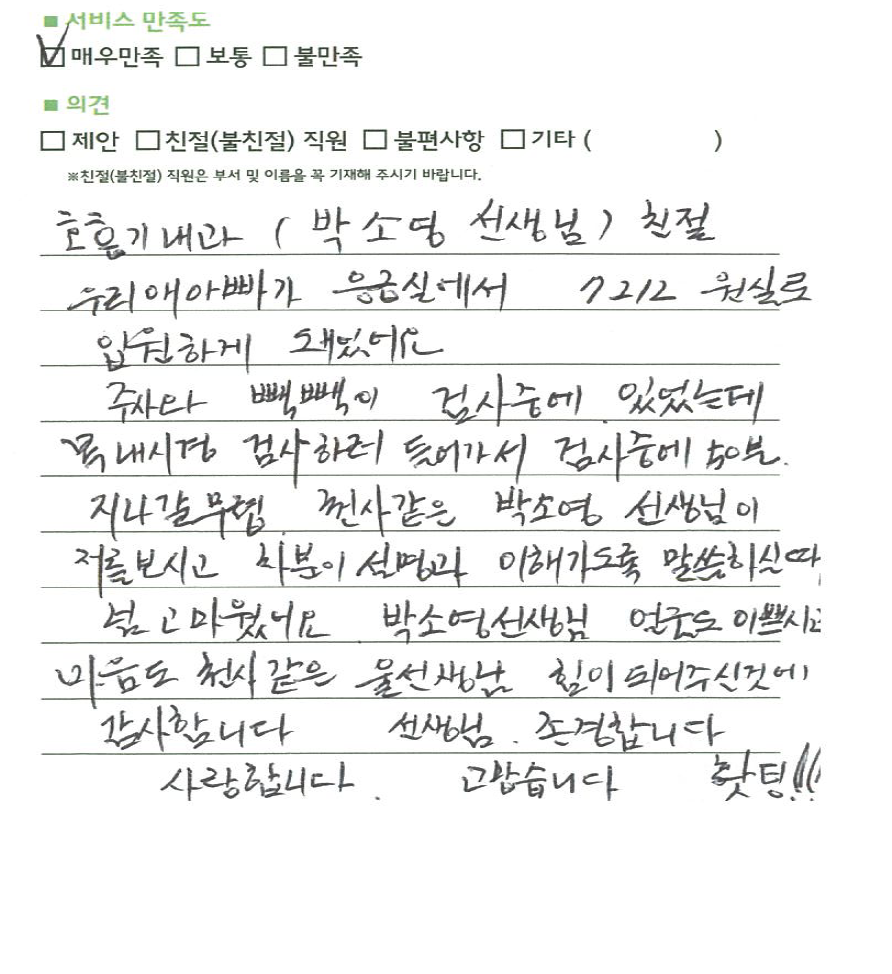 ■ 서비스 만족도
☑ 매우만족 □ 보통 □ 불만족
■ 의견
□ 제안 □ 친절(불친절) 직원 □ 불편사항 □ 기타 ( )
※친절(불친절) 직원은 부서 및 이름을 꼭 기재해 주시기 바랍니다.
호흡기내과 ( 박소영 선생님 ) 친절
우리애아빠가 응급실에서 7212 원실로
입원하게 돼있어요
주사와 빽빽이 검사중에 있었는데
목내시경 검사하러 들어가서 검사중에 50분.
지나갈무렵. 천사같은 박소영 선생님이
저를보시고 차분이 설명과 이해가도록 말씀하실때
넘 고마웠어요 박소영선생님 얼굴도 이쁘시고
마음도 천사 같은 울선생님 힘이 되어주신것에
감사합니다 선생님. 존경합니다
사랑합니다. 고맙습니다 홧팅!!!